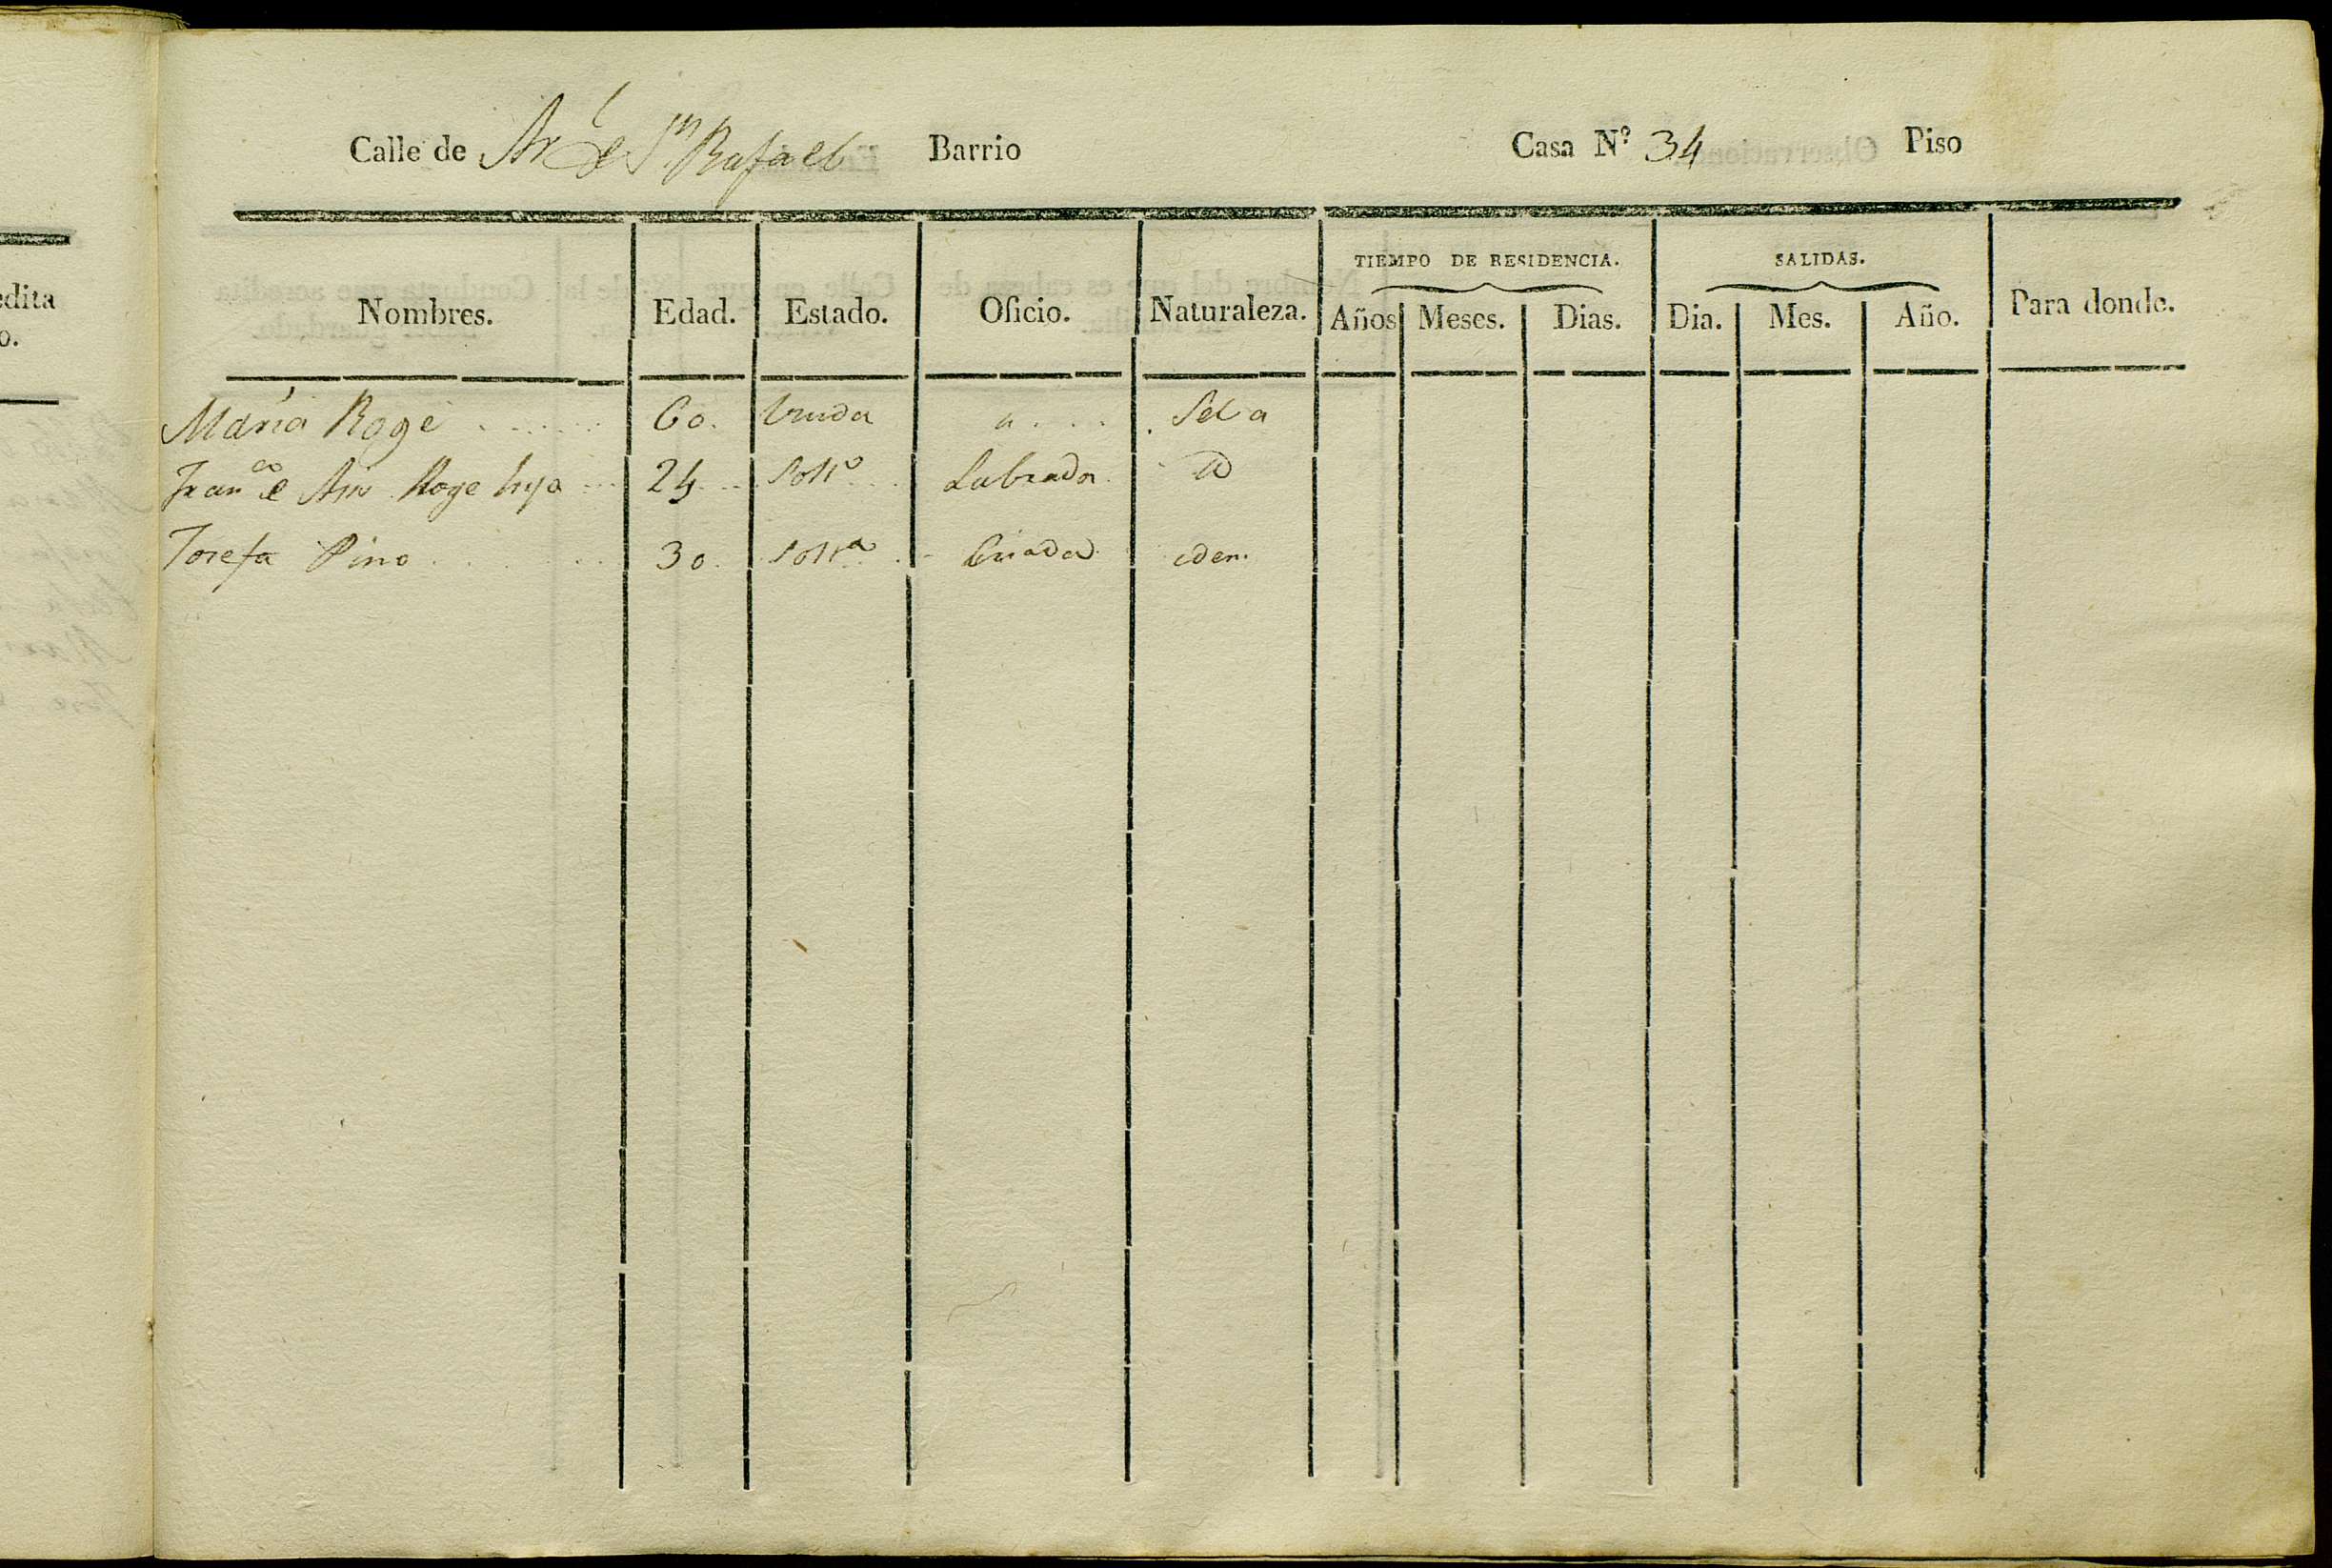 edita
o.
Calle de Ar.l de Sn. Rafael Barrio Casa N.º 34 Piso
TIEMPO DE RESIDENCIA. SALIDAS.
Nombres. Edad. Estado. Oficio. Naturaleza. Años Meses. Dias. Dia. Mes. Año. Para donde.
María Roge 60. Viuda " Sel a
Franco de Roge hijo 24 Solto Labrador
Josefa Pino 30. Solta Criada idem.